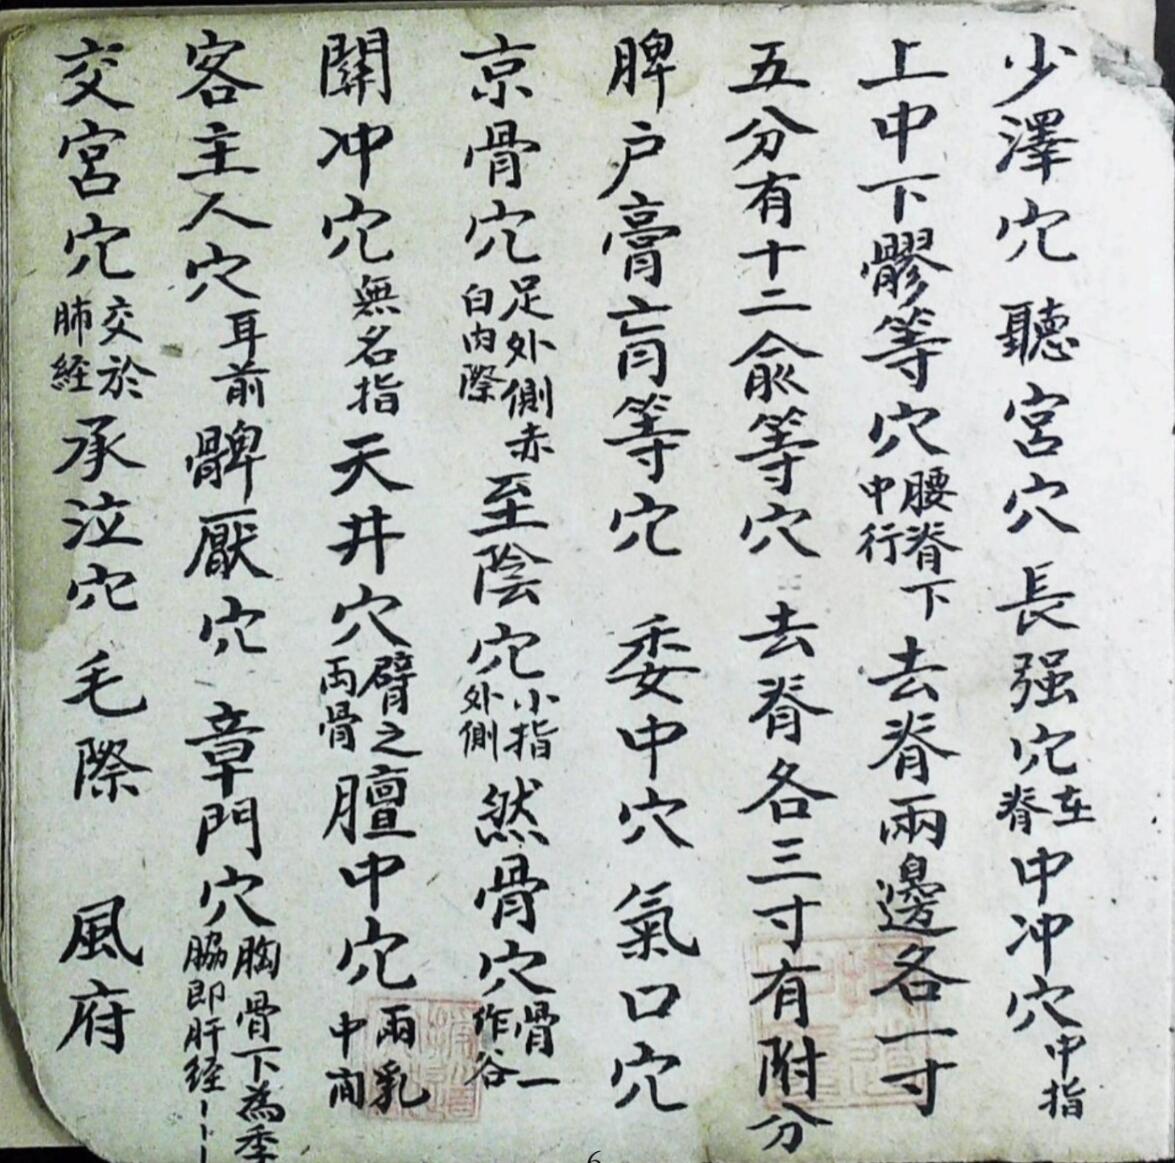 少澤穴 聽宮穴 長强穴在脊中冲穴中指
上中下髎等穴腰脊下中行去脊兩邊各一寸
五分有十二俞等穴 去脊各三寸有附分
脾户膏肓等穴 委中穴 氣口穴
京骨穴足外側赤白肉際至陰穴小指外側然骨穴骨一作谷
關冲穴無名指天井穴臂之両骨膻中穴兩乳中間
客主人穴耳前髀厭穴 章門穴胸骨下為季脇即肝経
交宮穴交於肺経承泣穴 毛際 風府
6